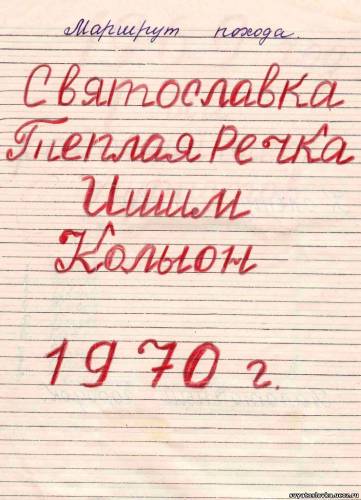 Маршрут похода.
Святославка
Теплая Речка
Ишим
Колыон
1970 г.
svyatoslovka.ucoz.ru